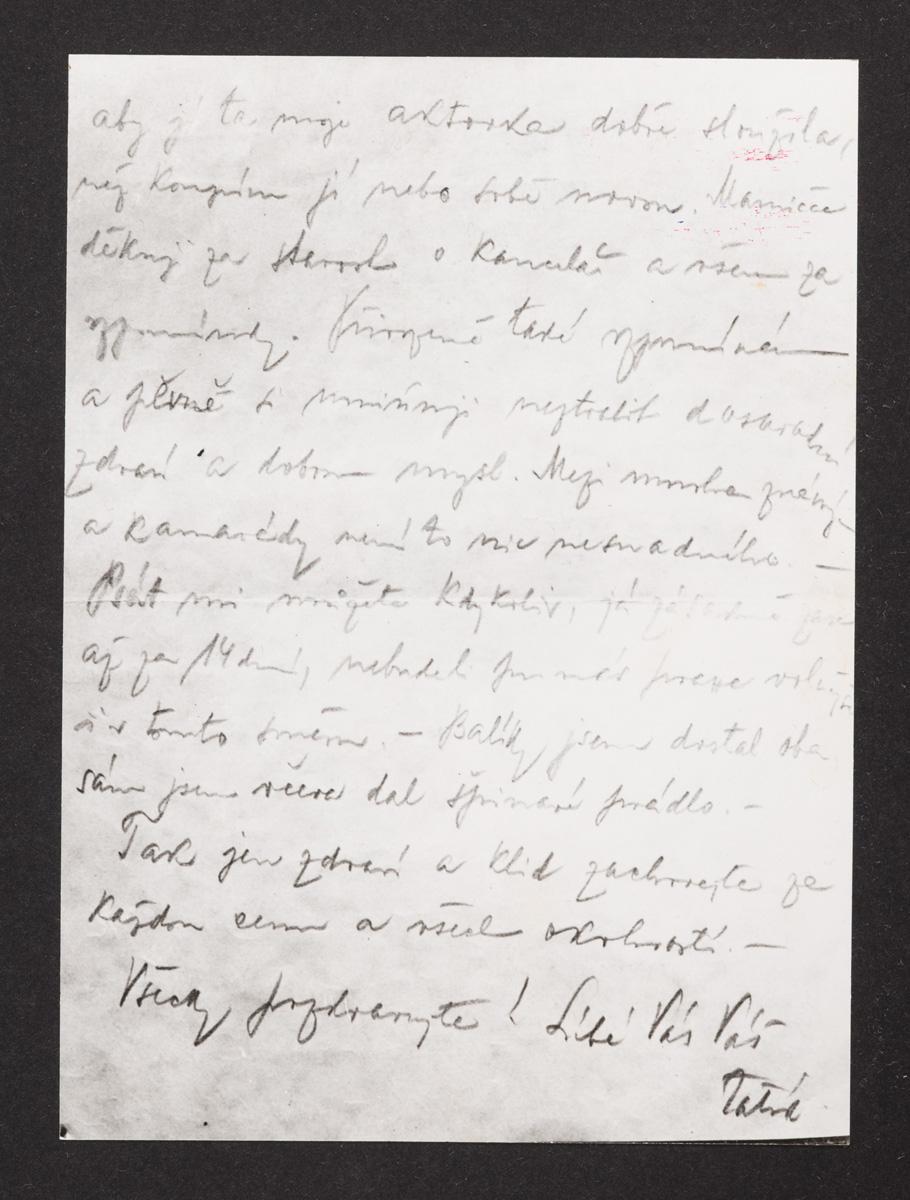 aby jí ta moje aktovka dobře sloužila,
než koupím jí nebo sobě novou. Mamičce
děkuji za starost o kancelář a všem za
vzpomínky. Přirozeně také vzpomínám
a pevně si umiňuji neztratit dosavadní
zdraví a dobrou mysl. Mezi mnoha známými
a kamarády není to nic nesnadného. —
Psát mi můžete kdykoliv, já zásadně zase
až za 14 dní, nebudeli pro nás praxe volnější
i v tomto směru. — Balíky jsem dostal oba
sám jsem včera dal špinavé prádlo. —
Tak jen zdraví a klid zachovejte za
každou cenu a všech okolností. —
Všecky pozdravujte! Líbá Vás Váš
Táta